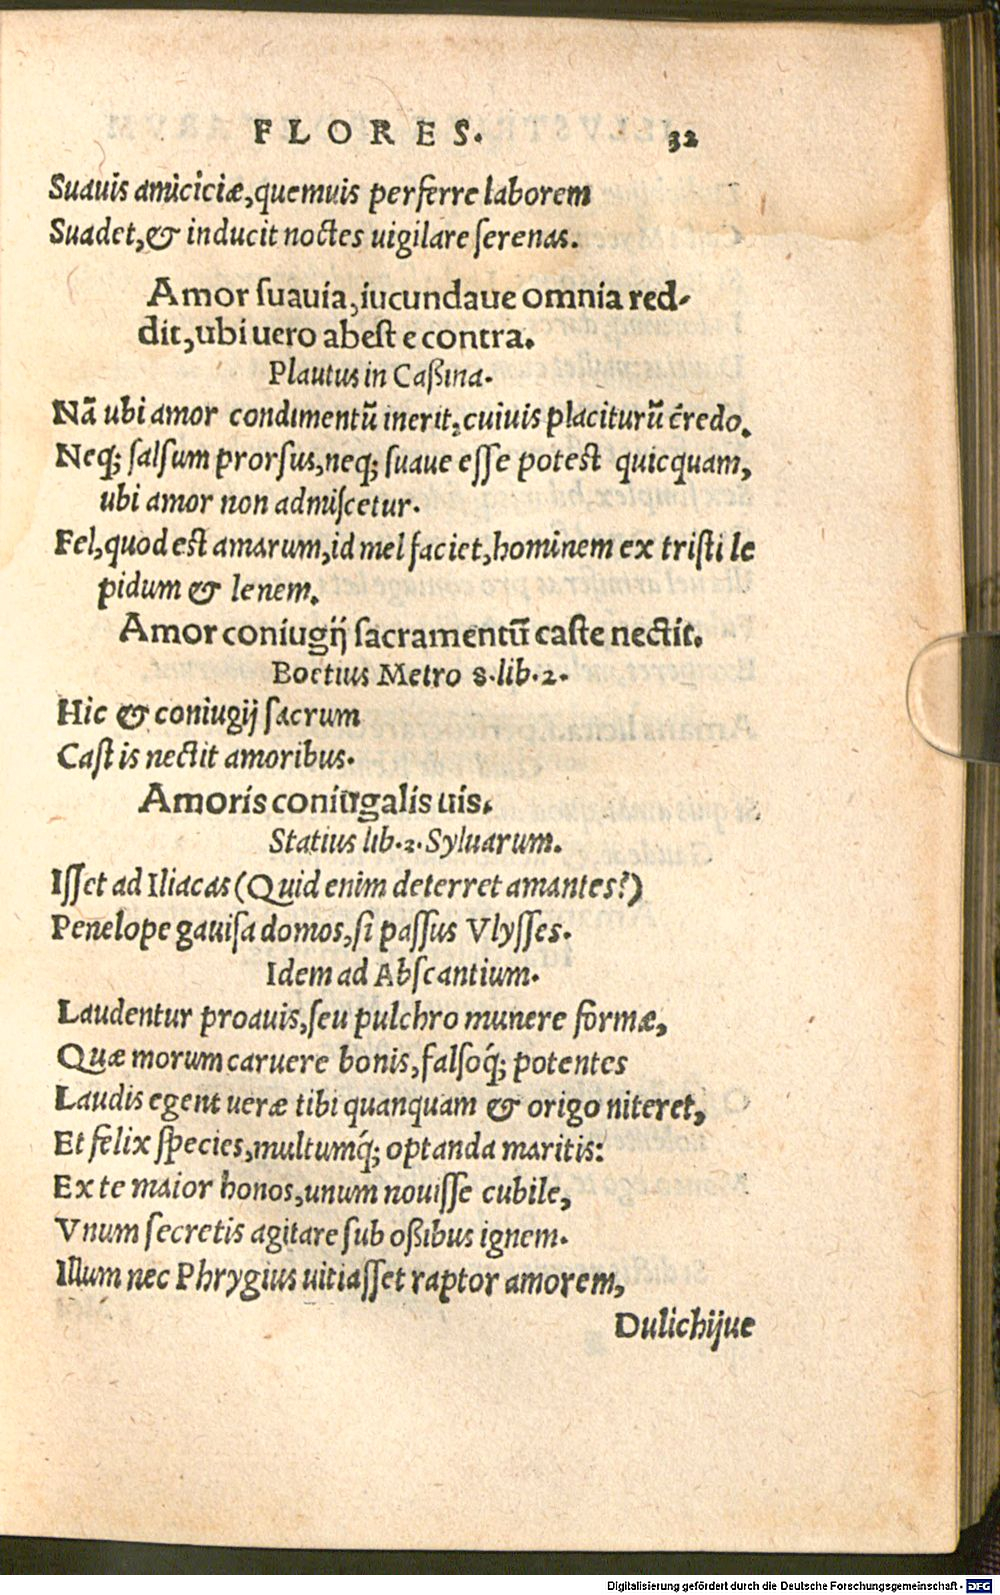 FLORES. 32
Suauis amiciciæ, quemuis perferre laborem
Suadet, & inducit noctes uigilare ſerenas.
Amor ſuauia, iucundaue omnia red-
dit, ubi uero abeſt e contra.
Plautus in Caßina.
Nã ubi amor condimentũ inerit, cuiuis placiturũ credo.
Neq; ſalſum prorſus, neq; ſuaue eſſe poteſt quicquam,
ubi amor non admiſcetur.
Fel, quod eſt amarum, id mel faciet, hominem ex triſti le
pidum & lenem.
Amor coniugij ſacramentũ caſte nectit.
Boetius Metro 8. lib. 2.
Hic & coniugij ſacrum
Caſtis nectit amoribus.
Amoris coniugalis uis.
Statius lib. 2. Syluarum.
Iſſet ad Iliacas (Quid enim deterret amantes?)
Penelope gauiſa domos, ſi paſſus Vlyſſes.
Idem ad Abſcantium.
Laudentur proauis, ſeu pulchro munere formæ,
Quæ morum caruere bonis, falſoq́; potentes
Laudis egent ueræ tibi quanquam & origo niteret,
Et felix ſpecies, multumq́; optanda maritis:
Ex te maior honos, unum nouiſſe cubile,
Vnum ſecretis agitare ſub oßibus ignem.
Illum nec Phrygius uitiaſſet raptor amorem,
Dulichijue
Digitalisierung gefördert durch die Deutsche Forschungsgemeinschaft - DFG